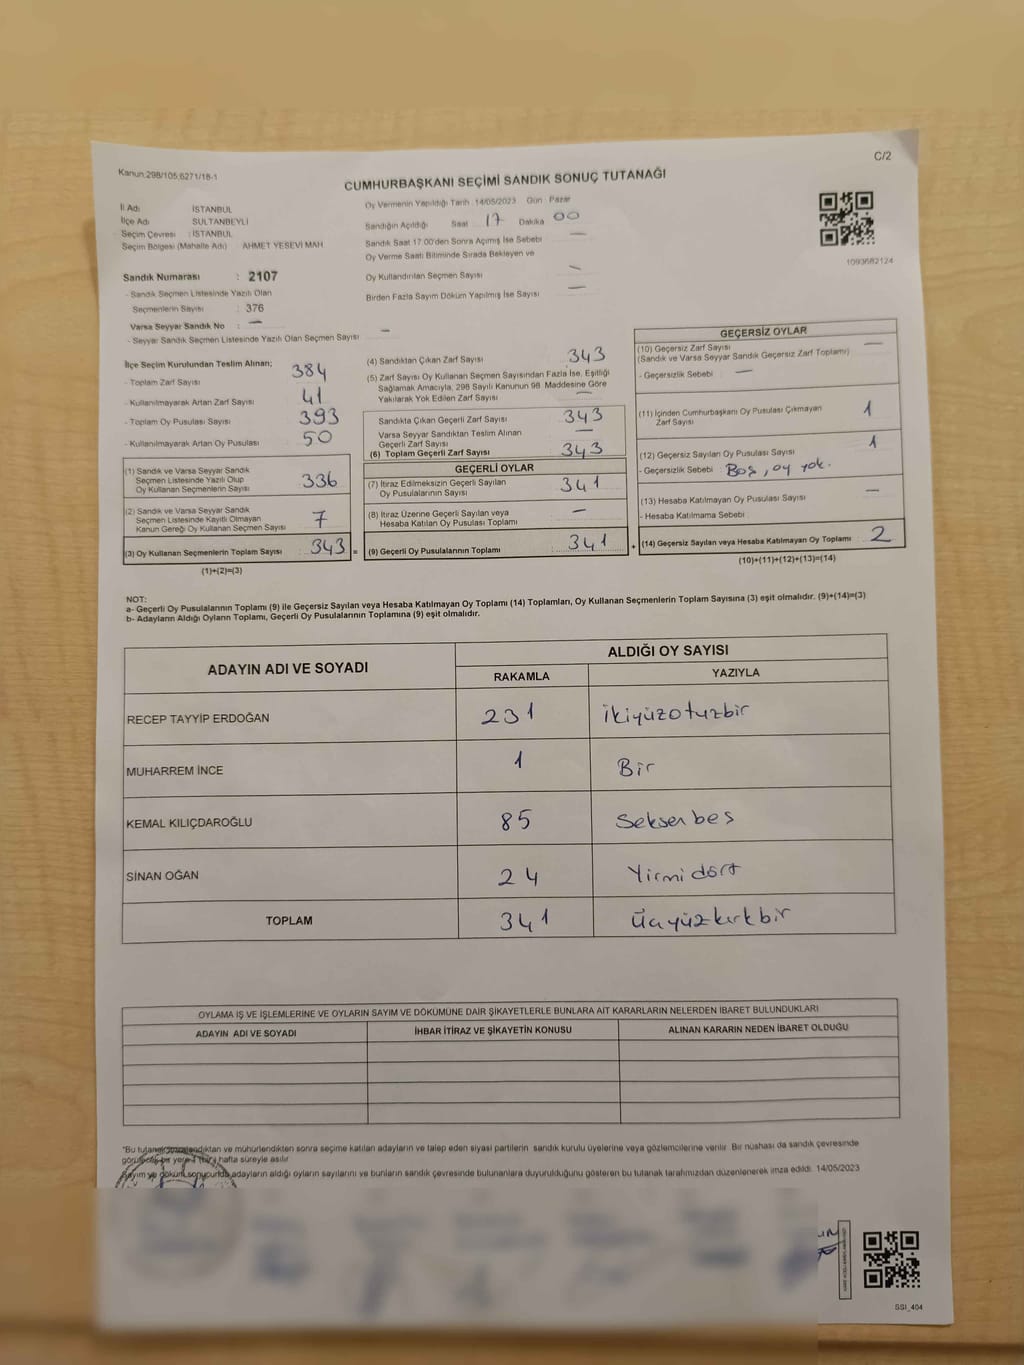 C/2
Kanun:298/105;6271/18-1
CUMHURBAŞKANI SEÇİMİ SANDIK SONUÇ TUTANAĞI
İl Adı : İSTANBUL
İlçe Adı : SULTANBEYLİ
Seçim Çevresi : İSTANBUL
Seçim Bölgesi (Mahalle Adı) AHMET YESEVİ MAH.
Sandık Numarası : 2107
- Sandık Seçmen Listesinde Yazılı Olan
Seçmenlerin Sayısı : 376
Varsa Seyyar Sandık No : —
- Seyyar Sandık Seçmen Listesinde Yazılı Olan Seçmen Sayısı —
Oy Vermenin Yapıldığı Tarih :14/05/2023 Gün : Pazar
Sandığın Açıldığı Saat : 17 Dakika 00
Sandık Saat 17.00'den Sonra Açılmış İse Sebebi —
Oy Verme Saati Bitiminde Sırada Bekleyen ve
Oy Kullandırılan Seçmen Sayısı —
Birden Fazla Sayım Döküm Yapılmış İse Sayısı —
1093682124
İlçe Seçim Kurulundan Teslim Alınan;
- Toplam Zarf Sayısı 384
- Kullanılmayarak Artan Zarf Sayısı 41
- Toplam Oy Pusulası Sayısı 393
- Kullanılmayarak Artan Oy Pusulası 50
(1) Sandık ve Varsa Seyyar Sandık
Seçmen Listesinde Yazılı Olup
Oy Kullanan Seçmenlerin Sayısı 336
(2) Sandık ve Varsa Seyyar Sandık
Seçmen Listesinde Kayıtlı Olmayan
Kanun Gereği Oy Kullanan Seçmen Sayısı 7
(3) Oy Kullanan Seçmenlerin Toplam Sayısı 343 =
(1)+(2)=(3)
(4) Sandıktan Çıkan Zarf Sayısı 343
(5) Zarf Sayısı Oy Kullanan Seçmen Sayısından Fazla İse, Eşitliği
Sağlamak Amacıyla, 298 Sayılı Kanunun 98. Maddesine Göre
Yakılarak Yok Edilen Zarf Sayısı —
Sandıkta Çıkan Geçerli Zarf Sayısı 343
Varsa Seyyar Sandıktan Teslim Alınan
Geçerli Zarf Sayısı —
(6) Toplam Geçerli Zarf Sayısı 343
GEÇERLİ OYLAR
(7) İtiraz Edilmeksizin Geçerli Sayılan
Oy Pusulalarının Sayısı 341
(8) İtiraz Üzerine Geçerli Sayılan veya
Hesaba Katılan Oy Pusulası Toplamı —
(9) Geçerli Oy Pusulalarının Toplamı 341 +
GEÇERSİZ OYLAR
(10) Geçersiz Zarf Sayısı —
(Sandık ve Varsa Seyyar Sandık Geçersiz Zarf Toplamı)
- Geçersizlik Sebebi : —
(11) İçinden Cumhurbaşkanı Oy Pusulası Çıkmayan
Zarf Sayısı 1
(12) Geçersiz Sayılan Oy Pusulası Sayısı 1
- Geçersizlik Sebebi : Boş, oy yok.
(13) Hesaba Katılmayan Oy Pusulası Sayısı —
- Hesaba Katılmama Sebebi :
(14) Geçersiz Sayılan veya Hesaba Katılmayan Oy Toplamı 2
(10)+(11)+(12)+(13)=(14)
NOT:
a- Geçerli Oy Pusulalarının Toplamı (9) ile Geçersiz Sayılan veya Hesaba Katılmayan Oy Toplamı (14) Toplamları, Oy Kullanan Seçmenlerin Toplam Sayısına (3) eşit olmalıdır. (9)+(14)=(3)
b- Adayların Aldığı Oyların Toplamı, Geçerli Oy Pusulalarının Toplamına (9) eşit olmalıdır.
ADAYIN ADI VE SOYADI ALDIĞI OY SAYISI
RAKAMLA YAZIYLA
RECEP TAYYİP ERDOĞAN 231 ikiyüzotuzbir
MUHARREM İNCE 1 Bir
KEMAL KILIÇDAROĞLU 85 Seksenbeş
SİNAN OĞAN 24 Yirmi dört
TOPLAM 341 Üçyüzkırkbir
OYLAMA İŞ VE İŞLEMLERİNE VE OYLARIN SAYIM VE DÖKÜMÜNE DAİR ŞİKAYETLERLE BUNLARA AİT KARARLARIN NELERDEN İBARET BULUNDUKLARI
ADAYIN ADI VE SOYADI İHBAR İTİRAZ VE ŞİKAYETİN KONUSU ALINAN KARARIN NEDEN İBARET OLDUĞU
ve mühürlendikten sonra seçime katılan adayların ve talep eden siyasi partilerin sandık kurulu üyelerine veya gözlemcilerine verilir. Bir nüshası da sandık çevresinde
hafta süreyle asılır.
adayların aldığı oyların sayılarını ve bunların sandık çevresinde bulunanlara duyurulduğunu gösteren bu tutanak tarafımızdan düzenlenerek imza edildi. 14/05/2023
SSI_404